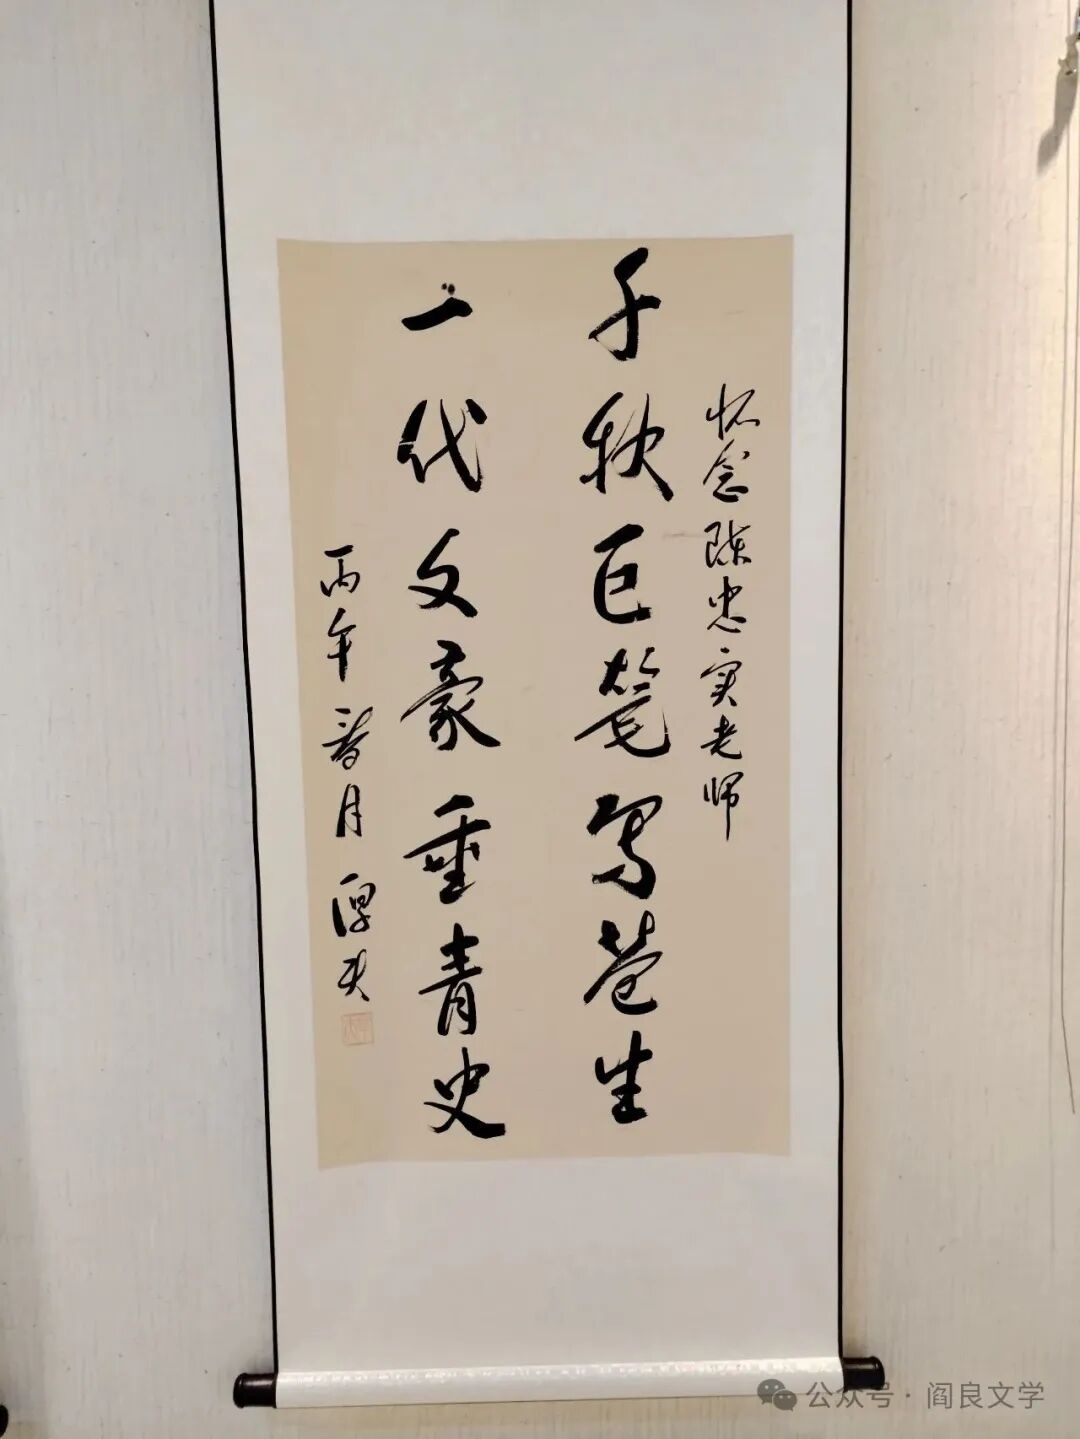 怀念陈忠实老师
千秋巨笔写苍生
一代文豪重青史
丙午春月 厚夫
公众号 · 阎良文学